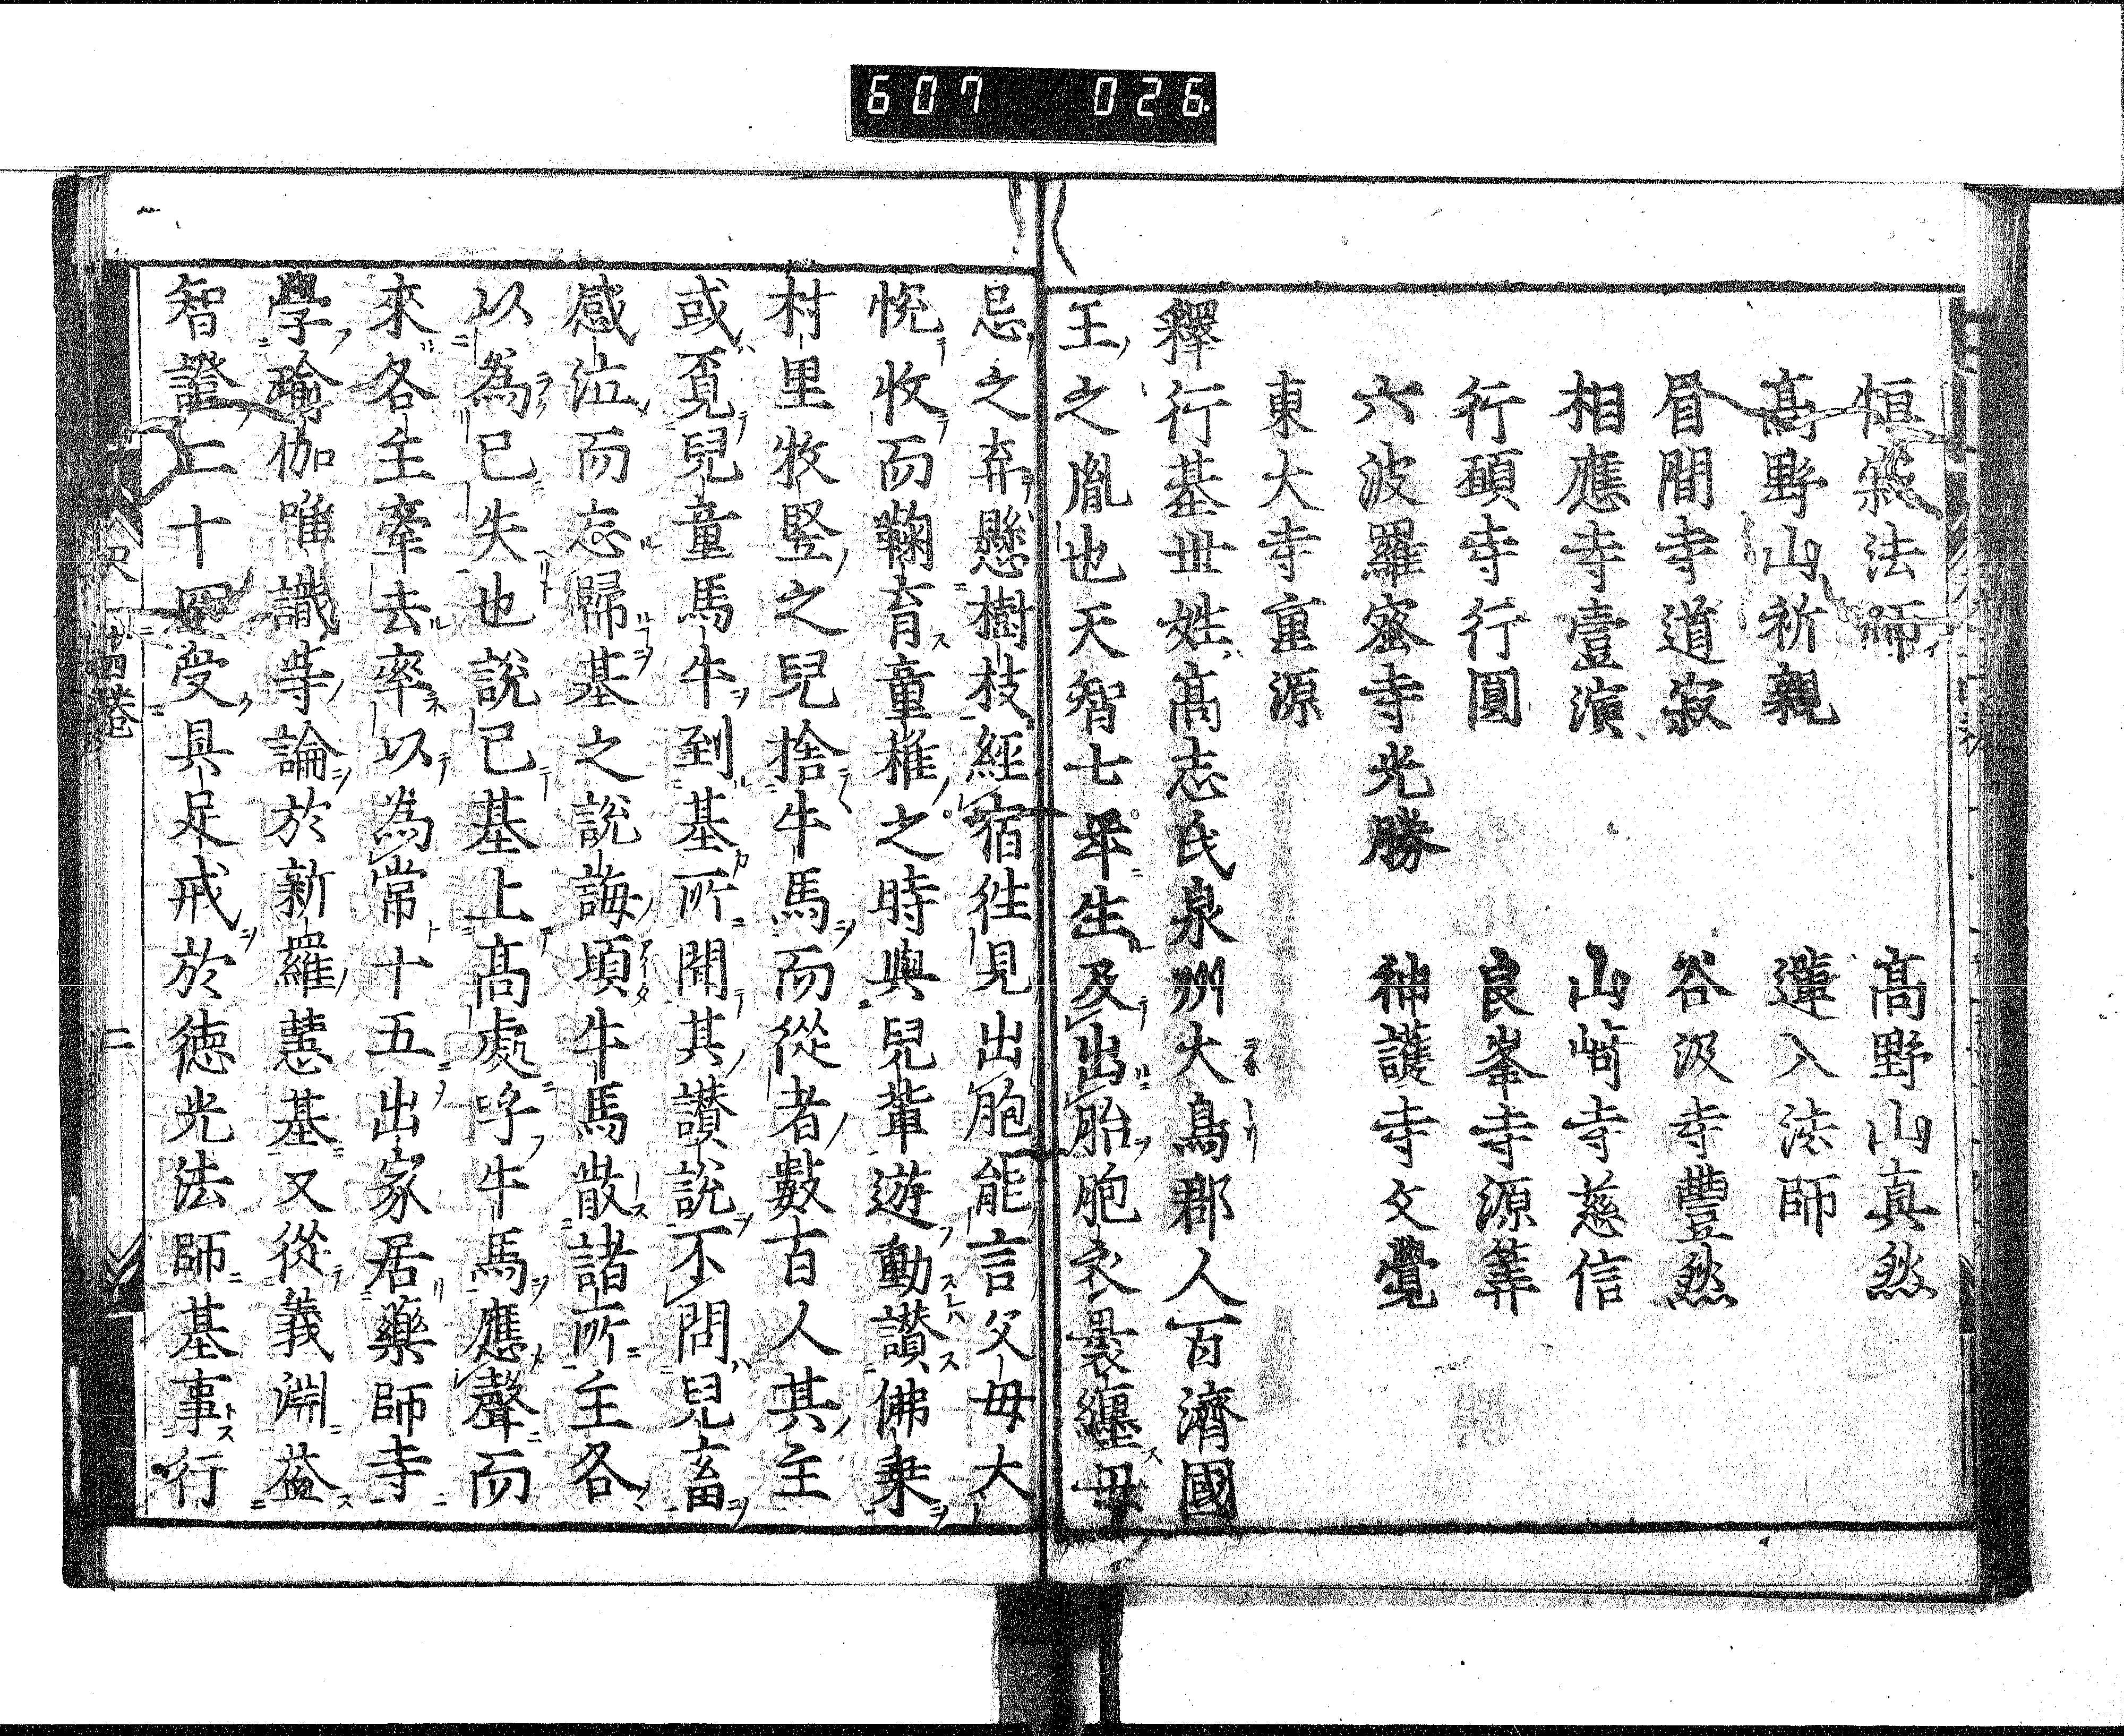 607 026
恒寂法師 高野山真然
高野山祈親 蓮入法師
眉間寺道寂 谷汲寺豐然
相應寺壹演 山崎寺慈信
行願寺行圓 良峯寺源筭
六波羅蜜寺光勝 神護寺文覺
東大寺重源
釋行基世姓高志氏泉州大鳥郡人百濟國
王之胤也天智七年生及出胎胞衣褁纏母
忌之弃懸樹枝經宿徃見出胞能言父母大
悦收而鞠育童稚之時與兒輩遊動讃佛乗
村里牧竪之兒捨牛馬而從者數百人其主
或覔兒童馬牛到基所聞其讃說不問兒畜
感泣而忘歸基之說誨頃牛馬散諸所主各
以爲已失也說已基上高處呼牛馬應聲而
來各主牽去率以為常十五出家居藥師寺
學瑜伽唯識等論於新羅慧基又從義淵益
智證二十四受具足戒於徳光法師基事行
釈 第四巻 二